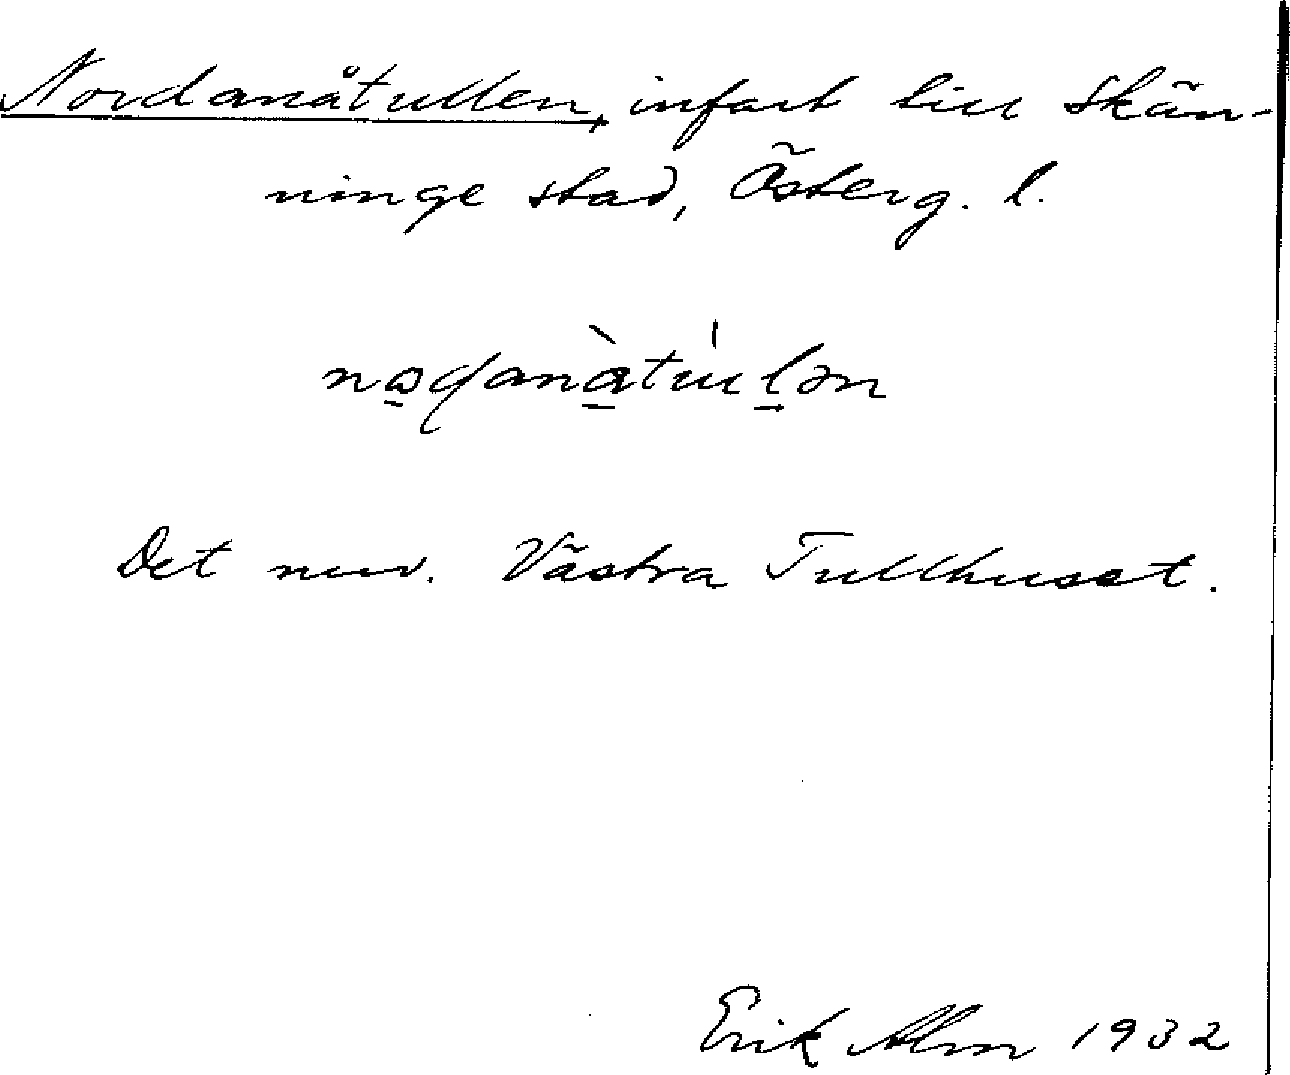 Nordanåtullen, infart till Skän-
ninge stad, Österg. l.
Det nuv. Västra Tullhuset.
Erik Alm 1932